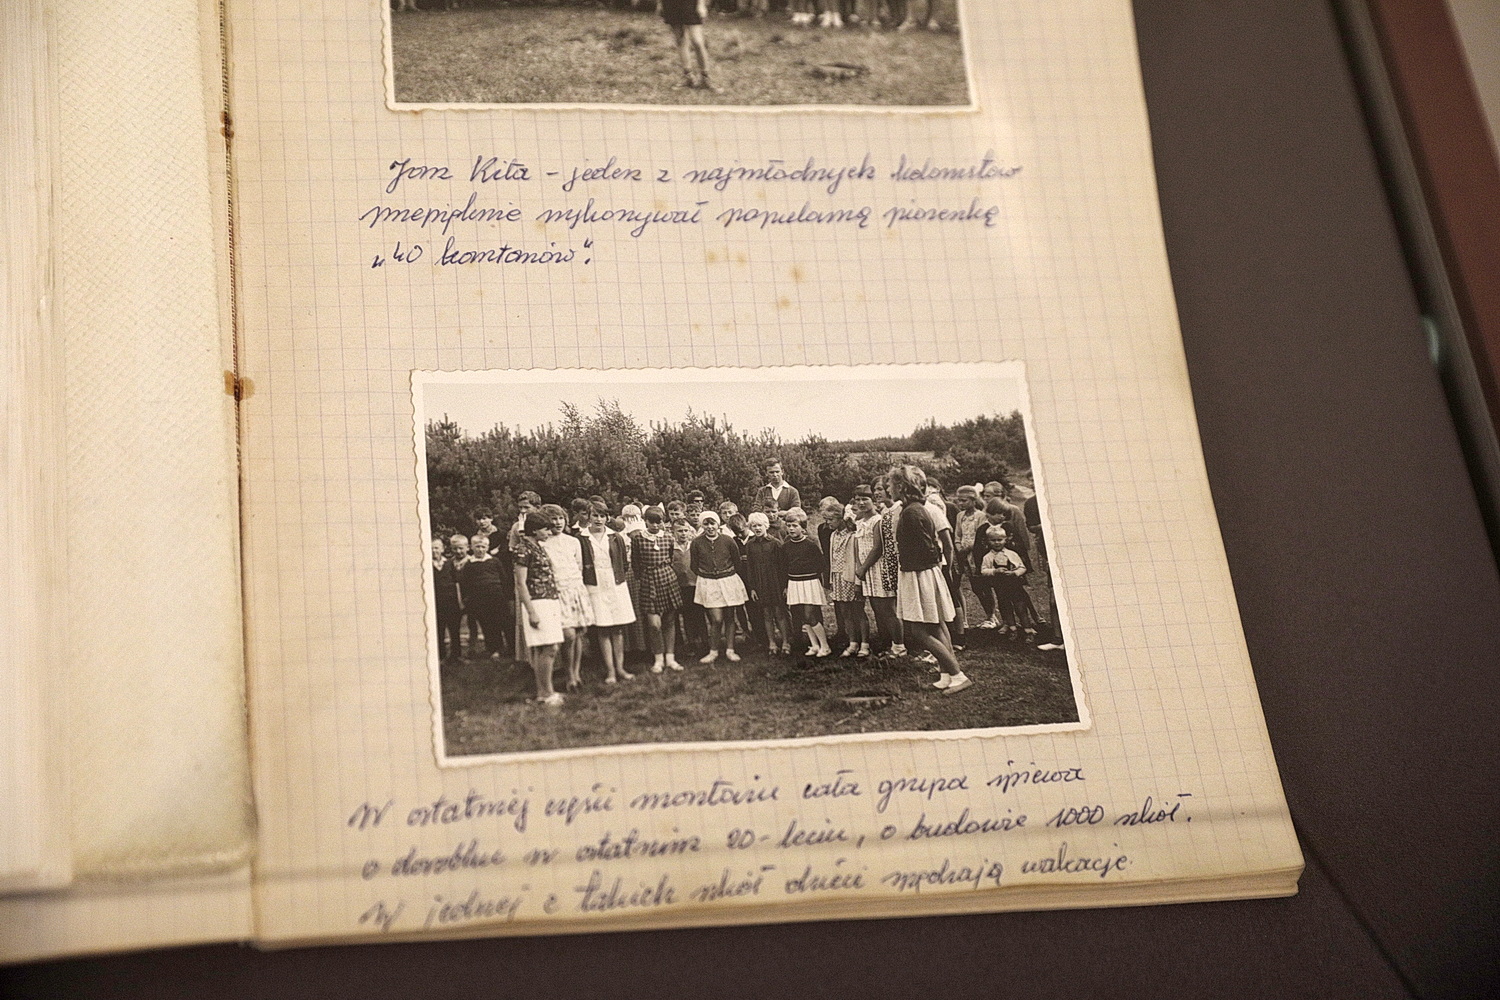 Jan Kita - jeden z najmłodszych kolonistów
przepięknie wykonywał popularną piosenkę
„40 kasztanów".
W ostatniej części montażu cała grupa śpiewa
o dorobku w ostatnim 20-leciu, o budowie 1000 szkół.
W jednej z takich szkół dzieci spędzają wakacje.